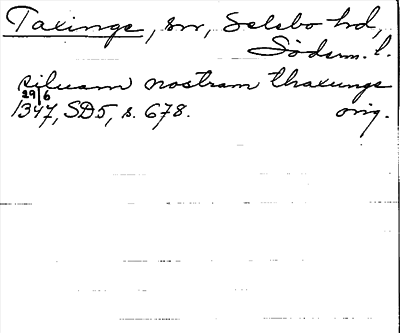 Taxinge, sn, Selebo hd,
Södm. l.
siluam nostram thaxungs
29/6
1347, SD5, s. 678. orig.